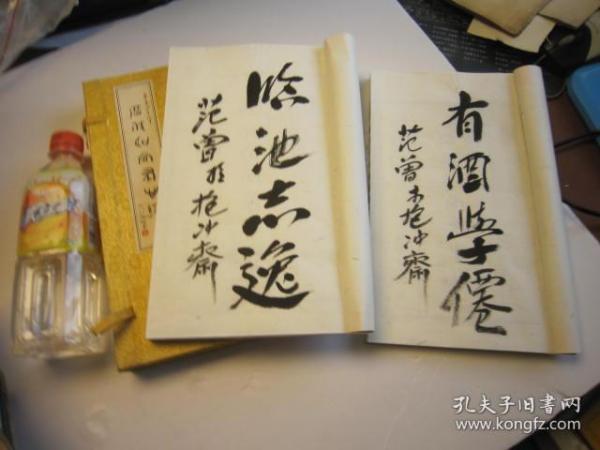 临池志逸
范曾於抱冲斋
有酒学僊
范曾於抱冲斋
孔夫子旧书网
www.kongfz.com